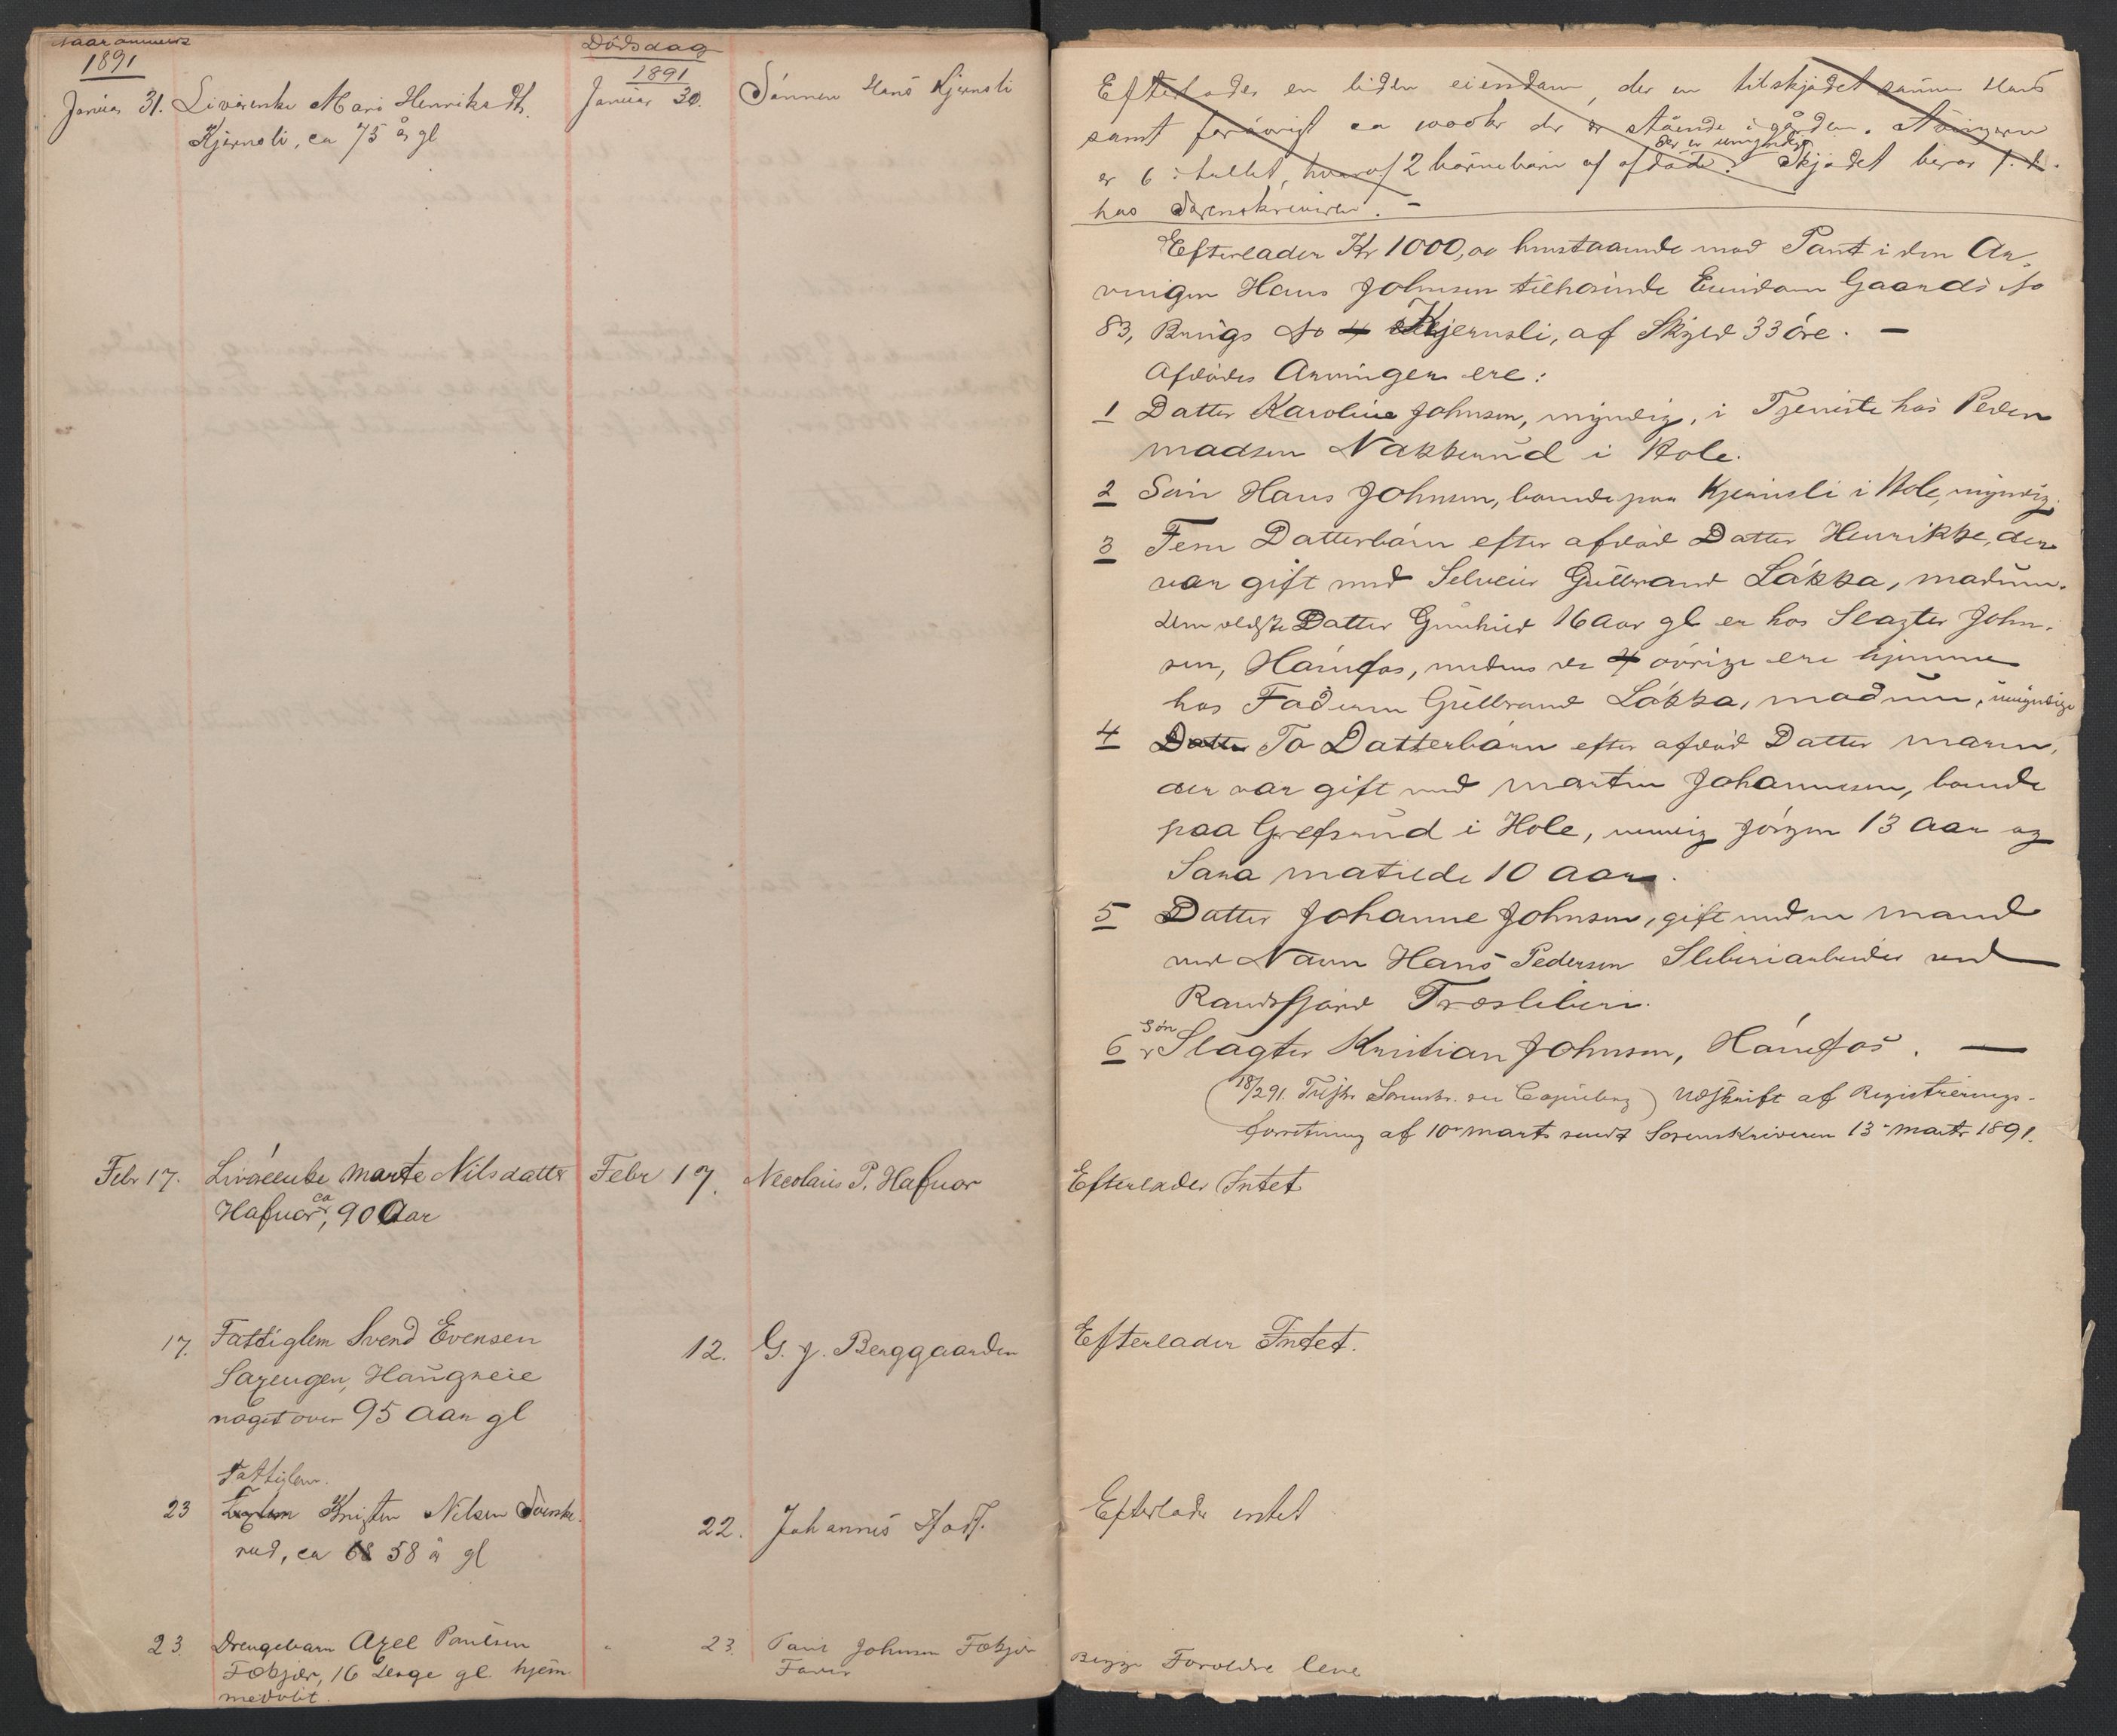 Naar anmeldt
1891
Dödsdag
1891
Januar 31. Livörenke Mari Henriksdt.
Kjernsli, ca 75 år gl
Januar 30.
Sønnen Hans Kjernsli
Efterlader en liden eiendom, der er tilskjödet sönnen Hans
samt forövrigt ca 1000 kr der er stående i gården. Arvingerne
er 6 i tallet, hvoraf 2 börnebörn af afdöde. Skjödet beror
der er umyndige
hos Sorenskriveren. –
Efterlader Kr 1000,00 henstaaende mod Pant i den Ar-
vingen Hans Johnsen tilhörende Eiendom Gaards No
83, Brugs No 4 Kjernsli, af Skyld 33 öre. –
Afdödes Arvinger ere:
1 Datter Karoline Johnsen, myndig, i Tjeneste hos Peder
Madsen Nakkerud i Hole.
2 Sön Hans Johnsen, boende paa Kjernsli i Hole, myndig.
3 Fem Datterbörn efter afdöd Datter Henrikke, der
var gift med Selveier Gulbrand Løkka, Modum.
Den ældste Datter Gunhild 16 Aar gl er hos Slagter John-
sen, Hönefos, medens de 4 övrige ere hjemme
hos Faderen Gulbrand Løkka, Modum, umyndige
4 Datter To Datterbörn efter afdöd Datter Maren,
der var gift med Martin Johannesen, boende
paa Grefsrud i Hole, nemlig Jörgen 13 Aar og
Sara Matilde 10 Aar.
5 Datter Johanne Johnsen, gift med en Mand
ved Navn Hans Pedersen Sliberiarbeider ved
Randsfjord Træsliberi.
6 Sön Slagter Kristian Johnsen, Hönefos. –
(18/2 91. Tilskr. Sorenskr.) Udskrift af Registrerings-
forretning af 10de Marts sendt Sorenskriveren 13de Marts 1891.
Febr 17. Livörenke Marte Nilsdatter
Hafnor, ca 90 Aar
Febr 17.
Necolaus P. Hafnor
Efterlader Intet
17. Fattiglem Svend Evensen
Saxengen, Haugseie
noget over 95 Aar gl
12.
G. J. Berggaarden
Efterlader Intet.
Fattiglem
23 Kristen Nilsen Svenske-
rud, ca 58 å gl
22.
Johannes
Efterlader intet
23. Drengebarn Axel Paulsen
Fækjær, 16 Dage gl. hjem-
medöbt.
" 23.
Paul Johnsen Fækjær
Fader
Begge Forældre leve